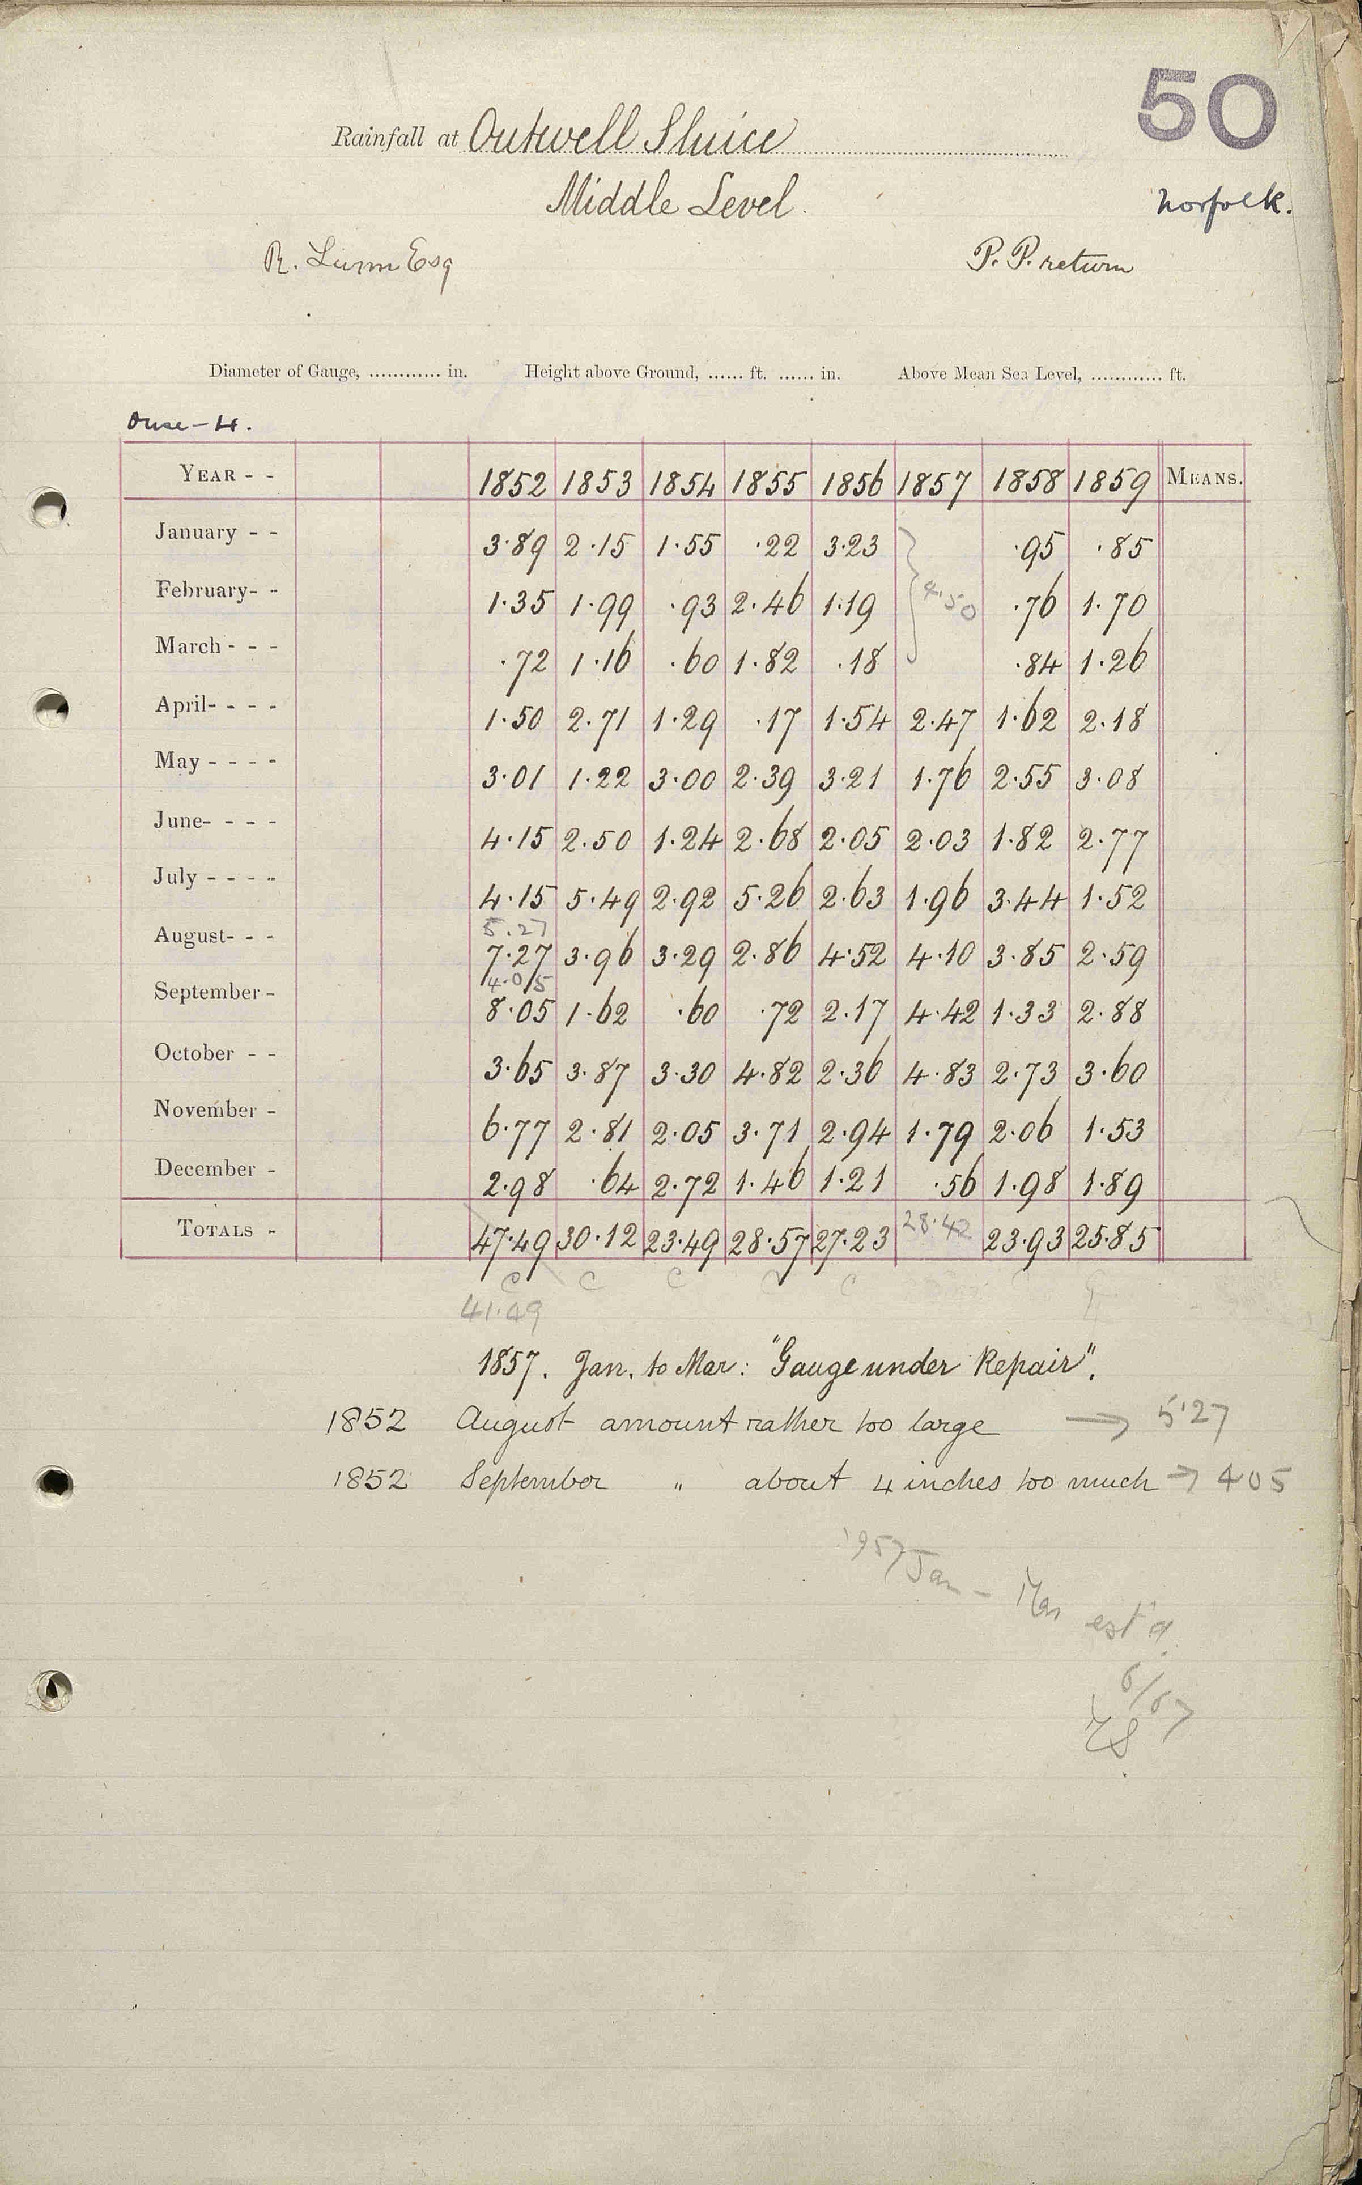 50
Rainfall at Outwell Sluice
Middle Level.
Norfolk.
R. Lunn Esq
P. P. return
Diameter of Gauge, ............ in. Height above Ground, ...... ft. ...... in. Above Mean Sea Level, ............ ft.
Ouse - 4.
YEAR - - 1852 1853 1854 1855 1856 1857 1858 1859 MEANS.
January - - 3.89 2.15 1.55 .22 3.23 .95 .85
February- - 1.35 1.99 .93 2.46 1.19 4.50 .76 1.70
March - - - .72 1.16 .60 1.82 .18 .84 1.26
April- - - - 1.50 2.71 1.29 .17 1.54 2.47 1.62 2.18
May - - - - 3.01 1.22 3.00 2.39 3.21 1.76 2.55 3.08
June- - - - 4.15 2.50 1.24 2.68 2.05 2.03 1.82 2.77
July - - - - 4.15 5.49 2.92 5.26 2.63 1.96 3.44 1.52
5.27
August- - - 7.27 3.96 3.29 2.86 4.52 4.10 3.85 2.59
4.05
September - 8.05 1.62 .60 .72 2.17 4.42 1.33 2.88
October - - 3.65 3.87 3.30 4.82 2.36 4.83 2.73 3.60
November - 6.77 2.81 2.05 3.71 2.94 1.79 2.06 1.53
December - 2.98 .64 2.72 1.46 1.21 .56 1.98 1.89
TOTALS - 47.49 30.12 23.49 28.57 27.23 28.42 23.93 25.85
C C C C C
41.49
1857. Jan. to Mar: "Gauge under Repair".
1852 August amount rather too large → 5.27
1852 September " about 4 inches too much → 4 05
1957 Jan - Mar est'd
6/67